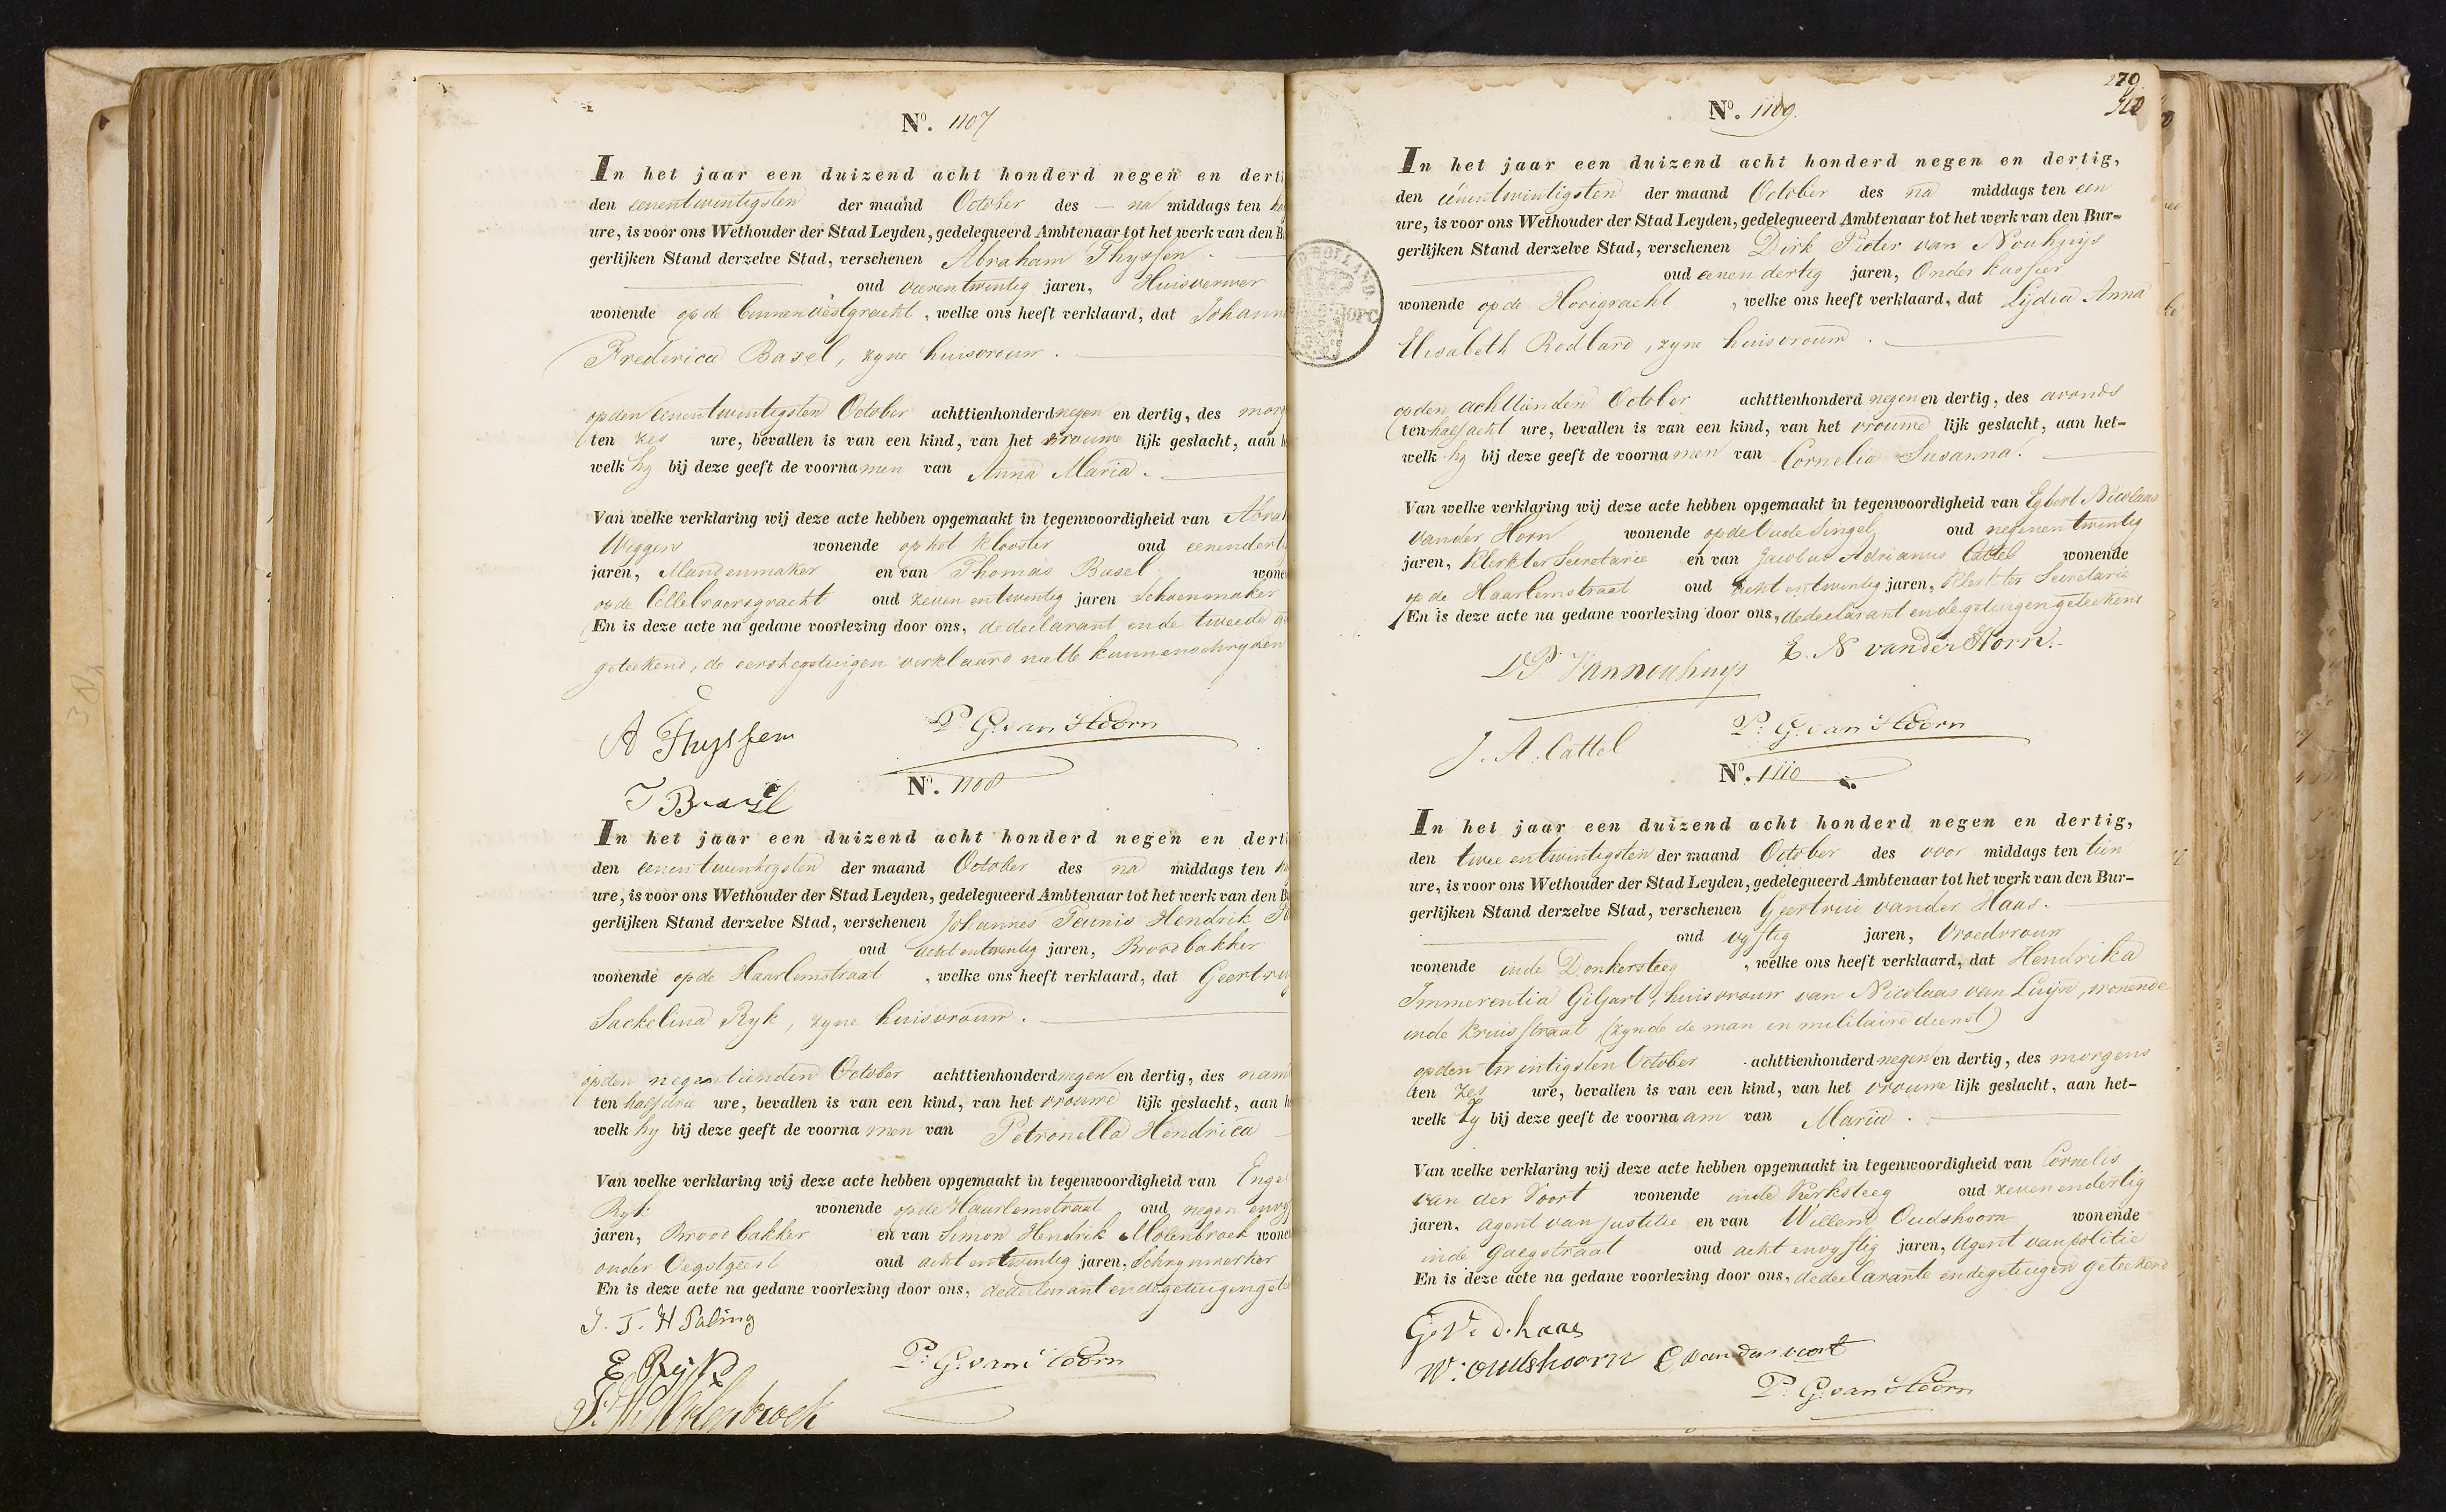 No. 1107
In het jaar een duizend acht honderd negen en derti
den eenentwintigsten der maand October des – na middags ten
ure, is voor ons Wethouder der Stad Leyden, gedelegueerd Ambtenaar tot het werk van den B
gerlijken Stand derzelve Stad, verschenen Abraham Thyssen.
oud vierentwintig jaren, Huisverwer
wonende op de binnenvestgracht, welke ons heeft verklaard, dat Johann
Frederica Basel, zyne huisvrouw.
op den eenentwintigsten October achttienhonderd negen en dertig, des morg
ten zes ure, bevallen is van een kind, van het vrouwe lijk geslacht, aan h
welk hy bij deze geeft de voornamen van Anna Maria.
Van welke verklaring wij deze acte hebben opgemaakt in tegenwoordigheid van Abrah
Weggers wonende op het Klooster oud eenenderti
jaren, Mandenmaker en van Thomas Basel wone
op de Cellebroersgracht oud zevenentwintig jaren Schoenmaker
En is deze acte na gedane voorlezing door ons, de declarant en de tweede g
geteekend, de eerste getuigen verklaard niet te kunnen schryven
A Thyssen P. G. van Hoorn
T Basel
No. 1108
In het jaar een duizend acht honderd negen en derti
den eenentwintigsten der maand October des na middags ten
ure, is voor ons Wethouder der Stad Leyden, gedelegueerd Ambtenaar tot het werk van den B
gerlijken Stand derzelve Stad, verschenen Johannes Teunis Hendrik Pa
oud achtentwintig jaren, Broodbakker
wonende op de Haarlemstraat, welke ons heeft verklaard, dat Geertruy
Jackelina Ryk, zyne huisvrouw.
op den negentienden October achttienhonderd negen en dertig, des nami
ten half drie ure, bevallen is van een kind, van het vrouwe lijk geslacht, aan h
welk hy bij deze geeft de voornamen van Petronella Hendrica
Van welke verklaring wij deze acte hebben opgemaakt in tegenwoordigheid van Engel
Ryk wonende op de Haarlemstraat oud negen envyf
jaren, Broodbakker en van Simon Hendrik Molenbroek wone
onder Oegstgeest oud achtentwintig jaren, Schrynwerker
En is deze acte na gedane voorlezing door ons, de declarant en de getuigen gete
J. T. H Paling
E Ryk P. G. van Hoorn
S. H. Molenbroek
270
No. 1109.
In het jaar een duizend acht honderd negen en dertig,
den eenentwintigsten der maand October des na middags ten een
ure, is voor ons Wethouder der Stad Leyden, gedelegueerd Ambtenaar tot het werk van den Bur-
gerlijken Stand derzelve Stad, verschenen Dirk Pieter van Nouhuys
oud eenendertig jaren, Onder kassier
wonende op de Hooigracht, welke ons heeft verklaard, dat Lydia Anna
Elisabeth Rodbard, zyne huisvrouw.
op den achttienden October achttienhonderd negen en dertig, des avonds
ten half acht ure, bevallen is van een kind, van het vrouwe lijk geslacht, aan het-
welk hy bij deze geeft de voornamen van Cornelia Susanna.
Van welke verklaring wij deze acte hebben opgemaakt in tegenwoordigheid van Egbert Nicolaas
van der Horn wonende op de Oude Singel oud negenentwintig
jaren, Klerk ter Secretarie en van Jacobus Adrianus Cattel wonende
op de Haarlemstraat oud achtentwintig jaren, Klerk ter Secretarie
En is deze acte na gedane voorlezing door ons, de declarant en de getuigen geteekend
D P. Van Nouhuys E. N van der Horn.
J. A. Cattel P. G. van Hoorn
No. 1110
In het jaar een duizend acht honderd negen en dertig,
den twee entwintigsten der maand October des voor middags ten tien
ure, is voor ons Wethouder der Stad Leyden, gedelegueerd Ambtenaar tot het werk van den Bur-
gerlijken Stand derzelve Stad, verschenen Geertrui van der Haas.
oud vyftig jaren, Vroedvrouw
wonende in de Donkersteeg, welke ons heeft verklaard, dat Hendrika
Immerentia Giljart, huisvrouw van Nicolaas van Luyn, wonende
in de Kruisstraat (zynde de man in militaire dienst)
op den twintigsten October achttienhonderd negen en dertig, des morgens
ten zes ure, bevallen is van een kind, van het vrouwe lijk geslacht, aan het-
welk zy bij deze geeft de voornaam van Maria.
Van welke verklaring wij deze acte hebben opgemaakt in tegenwoordigheid van Cornelis
van der Voort wonende in de Kerksteeg oud zevenendertig
jaren, agent van justitie en van Willem Oudshoorn wonende
in de Gaegstraat oud acht envyftig jaren, Agent van politie
En is deze acte na gedane voorlezing door ons, de declarante en de getuigen geteekend
G. V. d. haas
W. Oudshoorn C van der voort
P. G. van Hoorn